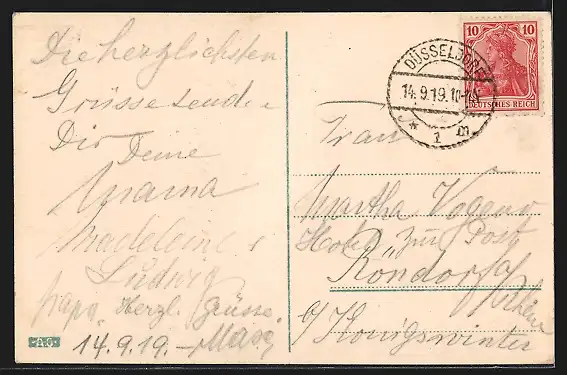 Die herzlichsten
Grüsse sendet
Dir Deine
Mama
Madeleine
Ludwig
Papa. Herzl. Grüsse.
14.9.19. – Max
A.G.
10 10
DEUTSCHES REICH
DÜSSELDORF
14.9.19. 10-11V
* 1 m
Frau
Martha
Hotel zur Post
Röndorf a/
Rhein
b/ Königswinter